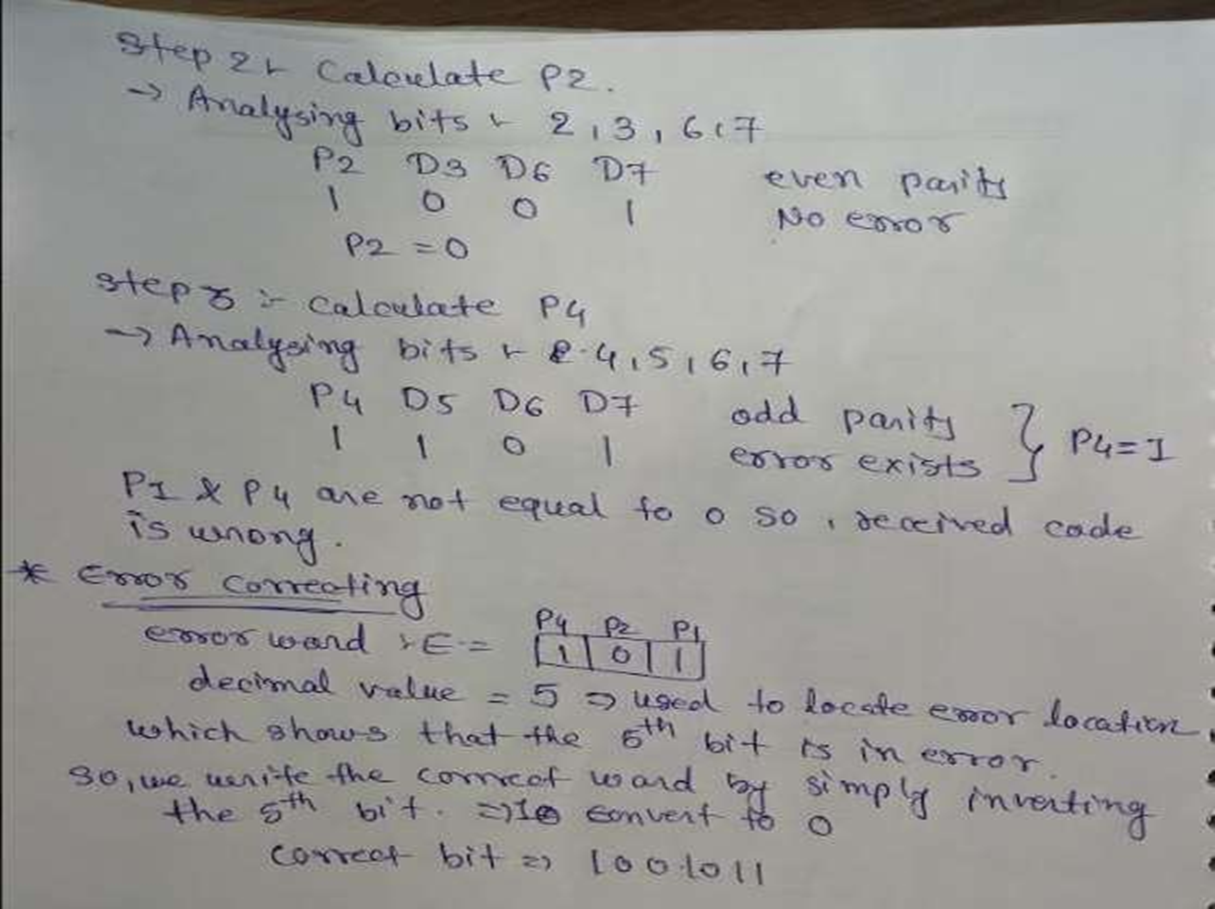 Step 2 :- Calculate P2.
→ Analysing bits :- 2, 3, 6, 7
P2 D3 D6 D7 even parity
1 0 0 1 No error
P2 = 0
Step 3 :- Calculate P4
→ Analysing bits :- 4, 5, 6, 7
P4 D5 D6 D7 odd parity
1 1 0 1 error exists } P4 = 1
P1 & P4 are not equal to 0 so, received code
is wrong.
* Error Correcting
P4 P2 P1
error word :- E = 1 0 1
decimal value = 5 ⇒ used to locate error location
which shows that the 5th bit is in error.
So, we write the correct word by simply inverting
the 5th bit. ⇒ 1 convert to 0
correct bit ⇒ 1001011